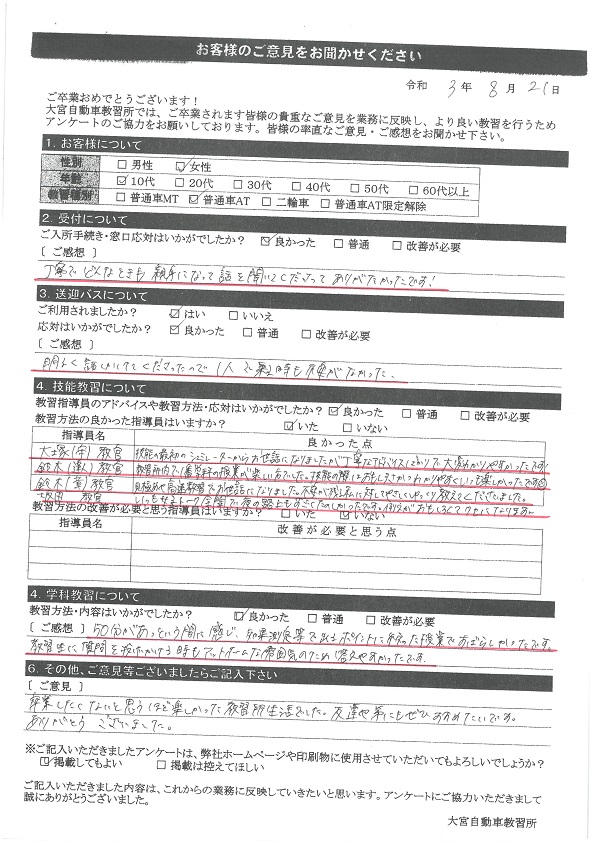 お客様のご意見をお聞かせください
令和 3年 8月 21日
ご卒業おめでとうございます！
大宮自動車教習所では、ご卒業されます皆様の貴重なご意見を業務に反映し、より良い教習を行うため
アンケートのご協力をお願いしております。皆様の率直なご意見・ご感想をお聞かせ下さい。
1. お客様について
性別 □ 男性 ☑ 女性
年齢 ☑ 10代 □ 20代 □ 30代 □ 40代 □ 50代 □ 60代以上
教習種別 □ 普通車MT ☑ 普通車AT □ 二輪車 □ 普通車AT限定解除
2. 受付について
ご入所手続き・窓口応対はいかがでしたか？ ☑ 良かった □ 普通 □ 改善が必要
〔 ご感想 〕
丁寧で どんなときも 親身になって 話を聞いてくださって ありがたかったです！
3. 送迎バスについて
ご利用されましたか？ ☑ はい □ いいえ
応対はいかがでしたか？ ☑ 良かった □ 普通 □ 改善が必要
〔 ご感想 〕
明るく 話しかけてくださったので 1人で乗る時も 不安がなかった。
4. 技能教習について
教習指導員のアドバイスや教習方法・応対はいかがでしたか？ ☑ 良かった □ 普通 □ 改善が必要
教習方法の良かった指導員はいますか？ ☑ いた □ いない
指導員名 良かった点
大塚 教官 技能の最初のシミュレーターからお世話になりましたが丁寧なアドバイスばかりで大変わかりやすかったです！
鈴木 教官 学科の授業が楽しい いつも楽しかったです
鈴木 教官 高速教習でお世話になりました。不安が残る私に対してやさしくゆっくり教えてくださいました。
坂田 教官 いつもせまい
教習方法の改善が必要と思う指導員はいますか？ □ いた ☑ いない
指導員名 改善が必要と思う点
4. 学科教習について
教習方法・内容はいかがでしたか？ ☑ 良かった □ 普通 □ 改善が必要
〔 ご感想 〕 50分があっという間に感じ、効果測定等で出るポイントに絞った授業ですばらしかったです。
教習生に質問を投げかける時もアットホームな雰囲気のため 答えやすかったです。
6. その他、ご意見等ございましたらご記入下さい
〔 ご意見 〕
卒業したくないと思うほど楽しかった教習所生活でした。友達や弟にもぜひおすすめしたいです。
ありがとう ございました。
※ご記入いただきましたアンケートは、弊社ホームページや印刷物に使用させていただいてもよろしいでしょうか？
☑ 掲載してもよい □ 掲載は控えてほしい
ご記入いただきました内容は、これからの業務に反映していきたいと思います。アンケートにご協力いただきまして
誠にありがとうございました。
大宮自動車教習所